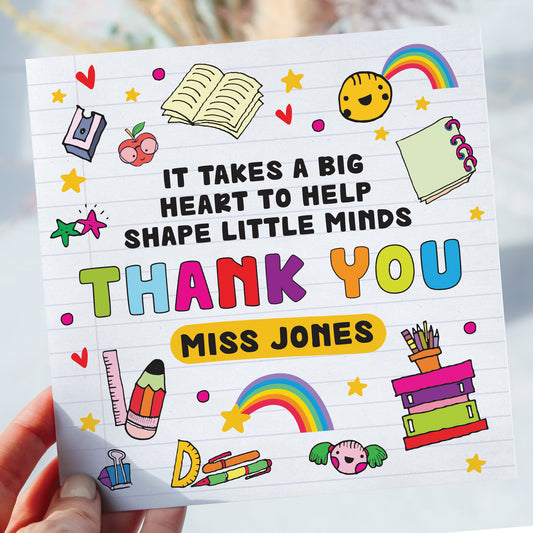 IT TAKES A BIG
HEART TO HELP
SHAPE LITTLE MINDS
THANK YOU
MISS JONES